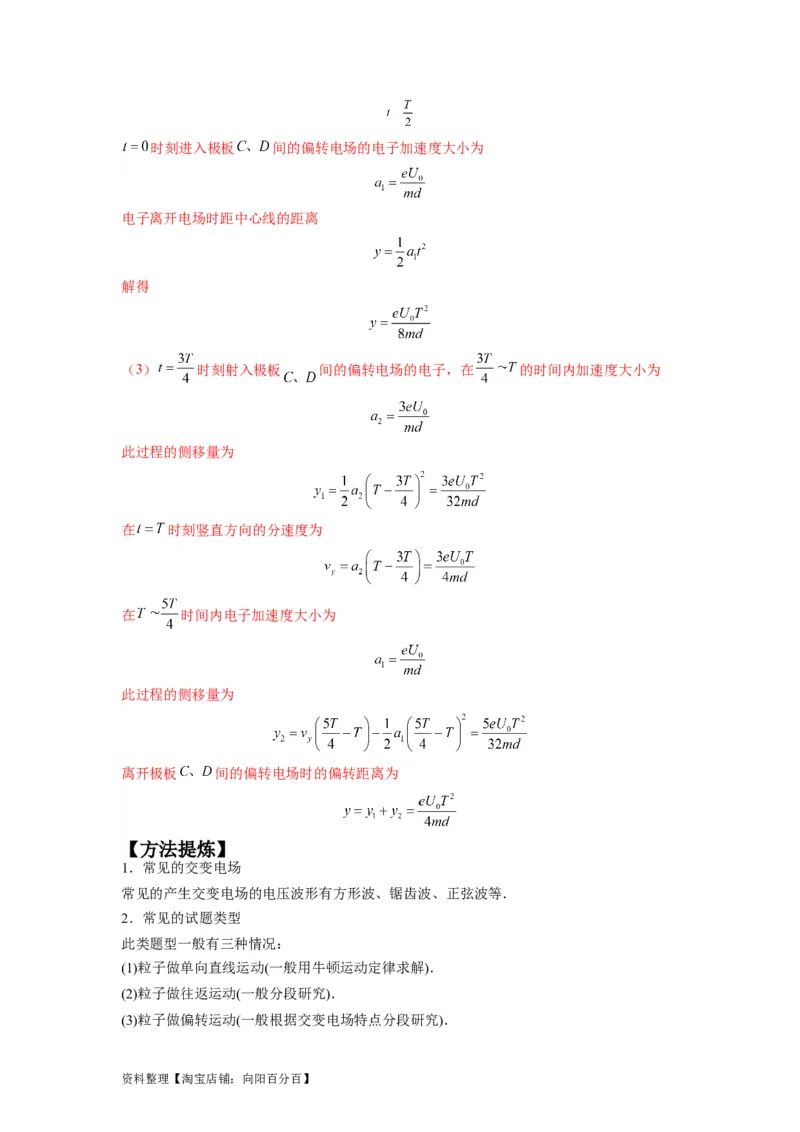 t T/2
t=0时刻进入极板C、D间的偏转电场的电子加速度大小为
a₁ = eU₀/md
电子离开电场时距中心线的距离
y = 1/2 a₁t²
解得
y = eU₀T²/8md
（3）t = 3T/4 时刻射入极板C、D间的偏转电场的电子，在 3T/4 ~T 的时间内加速度大小为
a₂ = 3eU₀/md
此过程的侧移量为
y₁ = 1/2 a₂(T − 3T/4)² = 3eU₀T²/32md
在t=T时刻竖直方向的分速度为
v_y = a₂(T − 3T/4) = 3eU₀T/4md
在T ~ 5T/4 时间内电子加速度大小为
a₁ = eU₀/md
此过程的侧移量为
y₂ = v_y(5T/4 − T) − 1/2 a₁(5T/4 − T)² = 5eU₀T²/32md
离开极板C、D间的偏转电场时的偏转距离为
y = y₁ + y₂ = eU₀T²/4md
【方法提炼】
1．常见的交变电场
常见的产生交变电场的电压波形有方形波、锯齿波、正弦波等．
2．常见的试题类型
此类题型一般有三种情况：
(1)粒子做单向直线运动(一般用牛顿运动定律求解)．
(2)粒子做往返运动(一般分段研究)．
(3)粒子做偏转运动(一般根据交变电场特点分段研究)．
资料整理【淘宝店铺：向阳百分百】